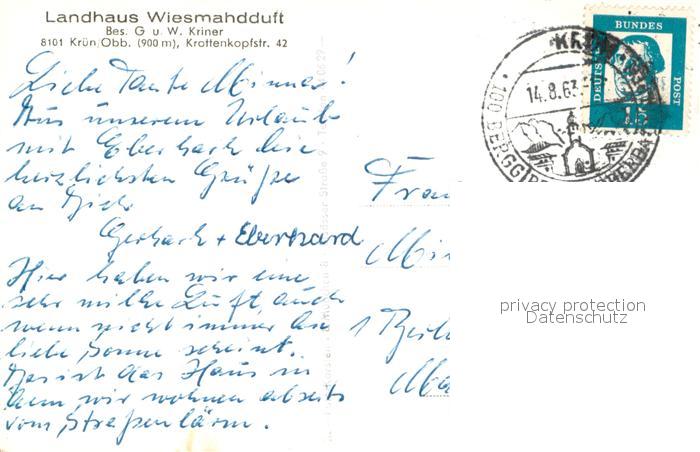 Landhaus Wiesmahdduft
Bes. G u. W. Kriner
8101 Krün/Obb. (900 m), Krottenkopfstr. 42
Liebe Tante Minna!
Aus unserem Urlaub
mit Eberhard die
herzlichsten Grüße
an Dich
Gerhard + Eberhard
Hier haben wir eine
sehr milde Luft, auch
wenn nicht immer die
liebe Sonne scheint.
Das ist das Haus in
dem wir wohnen abseits
vom Straßenlärm.
Frau
Min
1 Berli
Ma
14.8.63
DEUTSCHE
BUNDES
POST
15
privacy protection
Datenschutz